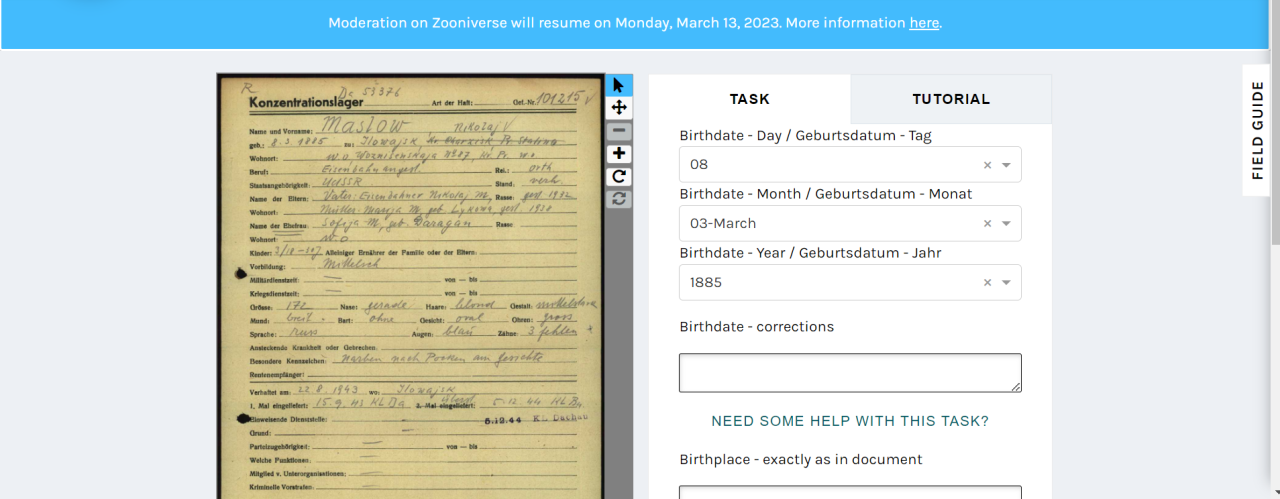 Moderation on Zooniverse will resume on Monday, March 13, 2023. More information here.
FIELD GUIDE
R De 53376
Konzentrationslager Art der Haft: Gef.-Nr. 101215
Name und Vorname: Maslow Nikolaj V
geb.: 8.3.1885 zu: Ilowajsk,
Wohnort: w.o.
Beruf: Eisenbahn angest. Rel.: orth.
Staatsangehörigkeit: UdSSR Stand: verh.
Name der Eltern: Vater: Eisenbahner Nikolaj M, Rasse: gest 1932
Wohnort: Mutter: Marija M. geb. gest 1930
Name der Ehefrau: Sofija M. geb. Baragan Rasse
Wohnort: w.o.
Kinder: 3/18- Alleiniger Ernährer der Familie oder der Eltern:
Vorbildung: Mittelsch
Militärdienstzeit: von — bis
Kriegsdienstzeit: von — bis
Grösse: 172 Nase: gerade Haare: blond Gestalt: mittelstark
Mund: breit Bart: ohne Gesicht: oval Ohren: gross
Sprache: russ Augen: blau Zähne: 3 fehlen
Ansteckende Krankheit oder Gebrechen:
Besondere Kennzeichen: Narben nach Pocken am Gesichte
Rentenempfänger:
Verhaftet am: 22.8.1943 wo: Ilowajsk
1. Mal eingeliefert: 15.9.43 KL Da 2. Mal eingeliefert: 5.12.44 KL
Einweisende Dienststelle: 5.12.44 KL Dachau
Grund:
Parteizugehörigkeit: von — bis
Welche Funktionen:
Mitglied v. Unterorganisationen:
Kriminelle Vorstrafen:
TASK
TUTORIAL
Birthdate - Day / Geburtsdatum - Tag
08
Birthdate - Month / Geburtsdatum - Monat
03-March
Birthdate - Year / Geburtsdatum - Jahr
1885
Birthdate - corrections
NEED SOME HELP WITH THIS TASK?
Birthplace - exactly as in document